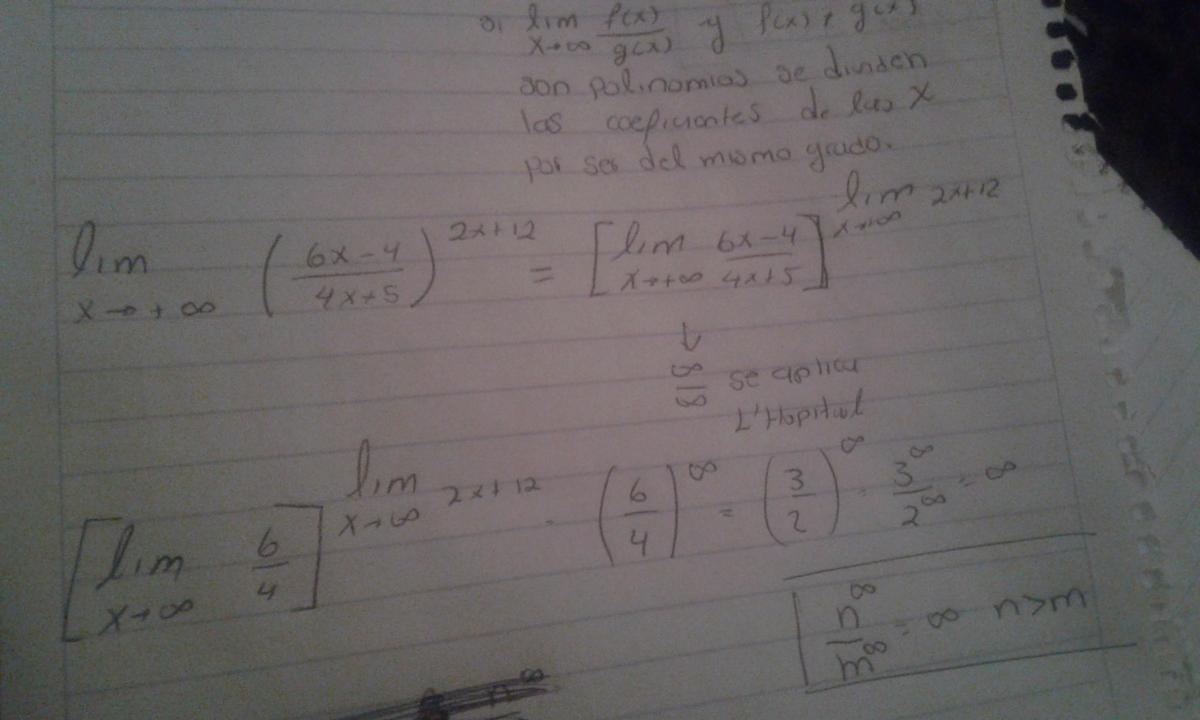 si lim x→∞ f(x)/g(x) y f(x) y g(x)
son polinomios se dividen
los coeficientes de las x
por ser del mismo grado.
lim x→+∞ ((6x-4)/(4x+5))^(2x+12) = [lim x→+∞ (6x-4)/(4x+5)]^(lim x→+∞ 2x+12)
↓
∞/∞ se aplica
L'Hopital
[lim x→∞ 6/4]^(lim x→∞ 2x+12) = (6/4)^∞ = (3/2)^∞ = 3^∞/2^∞ = ∞
n^∞/m^∞ = ∞ n>m